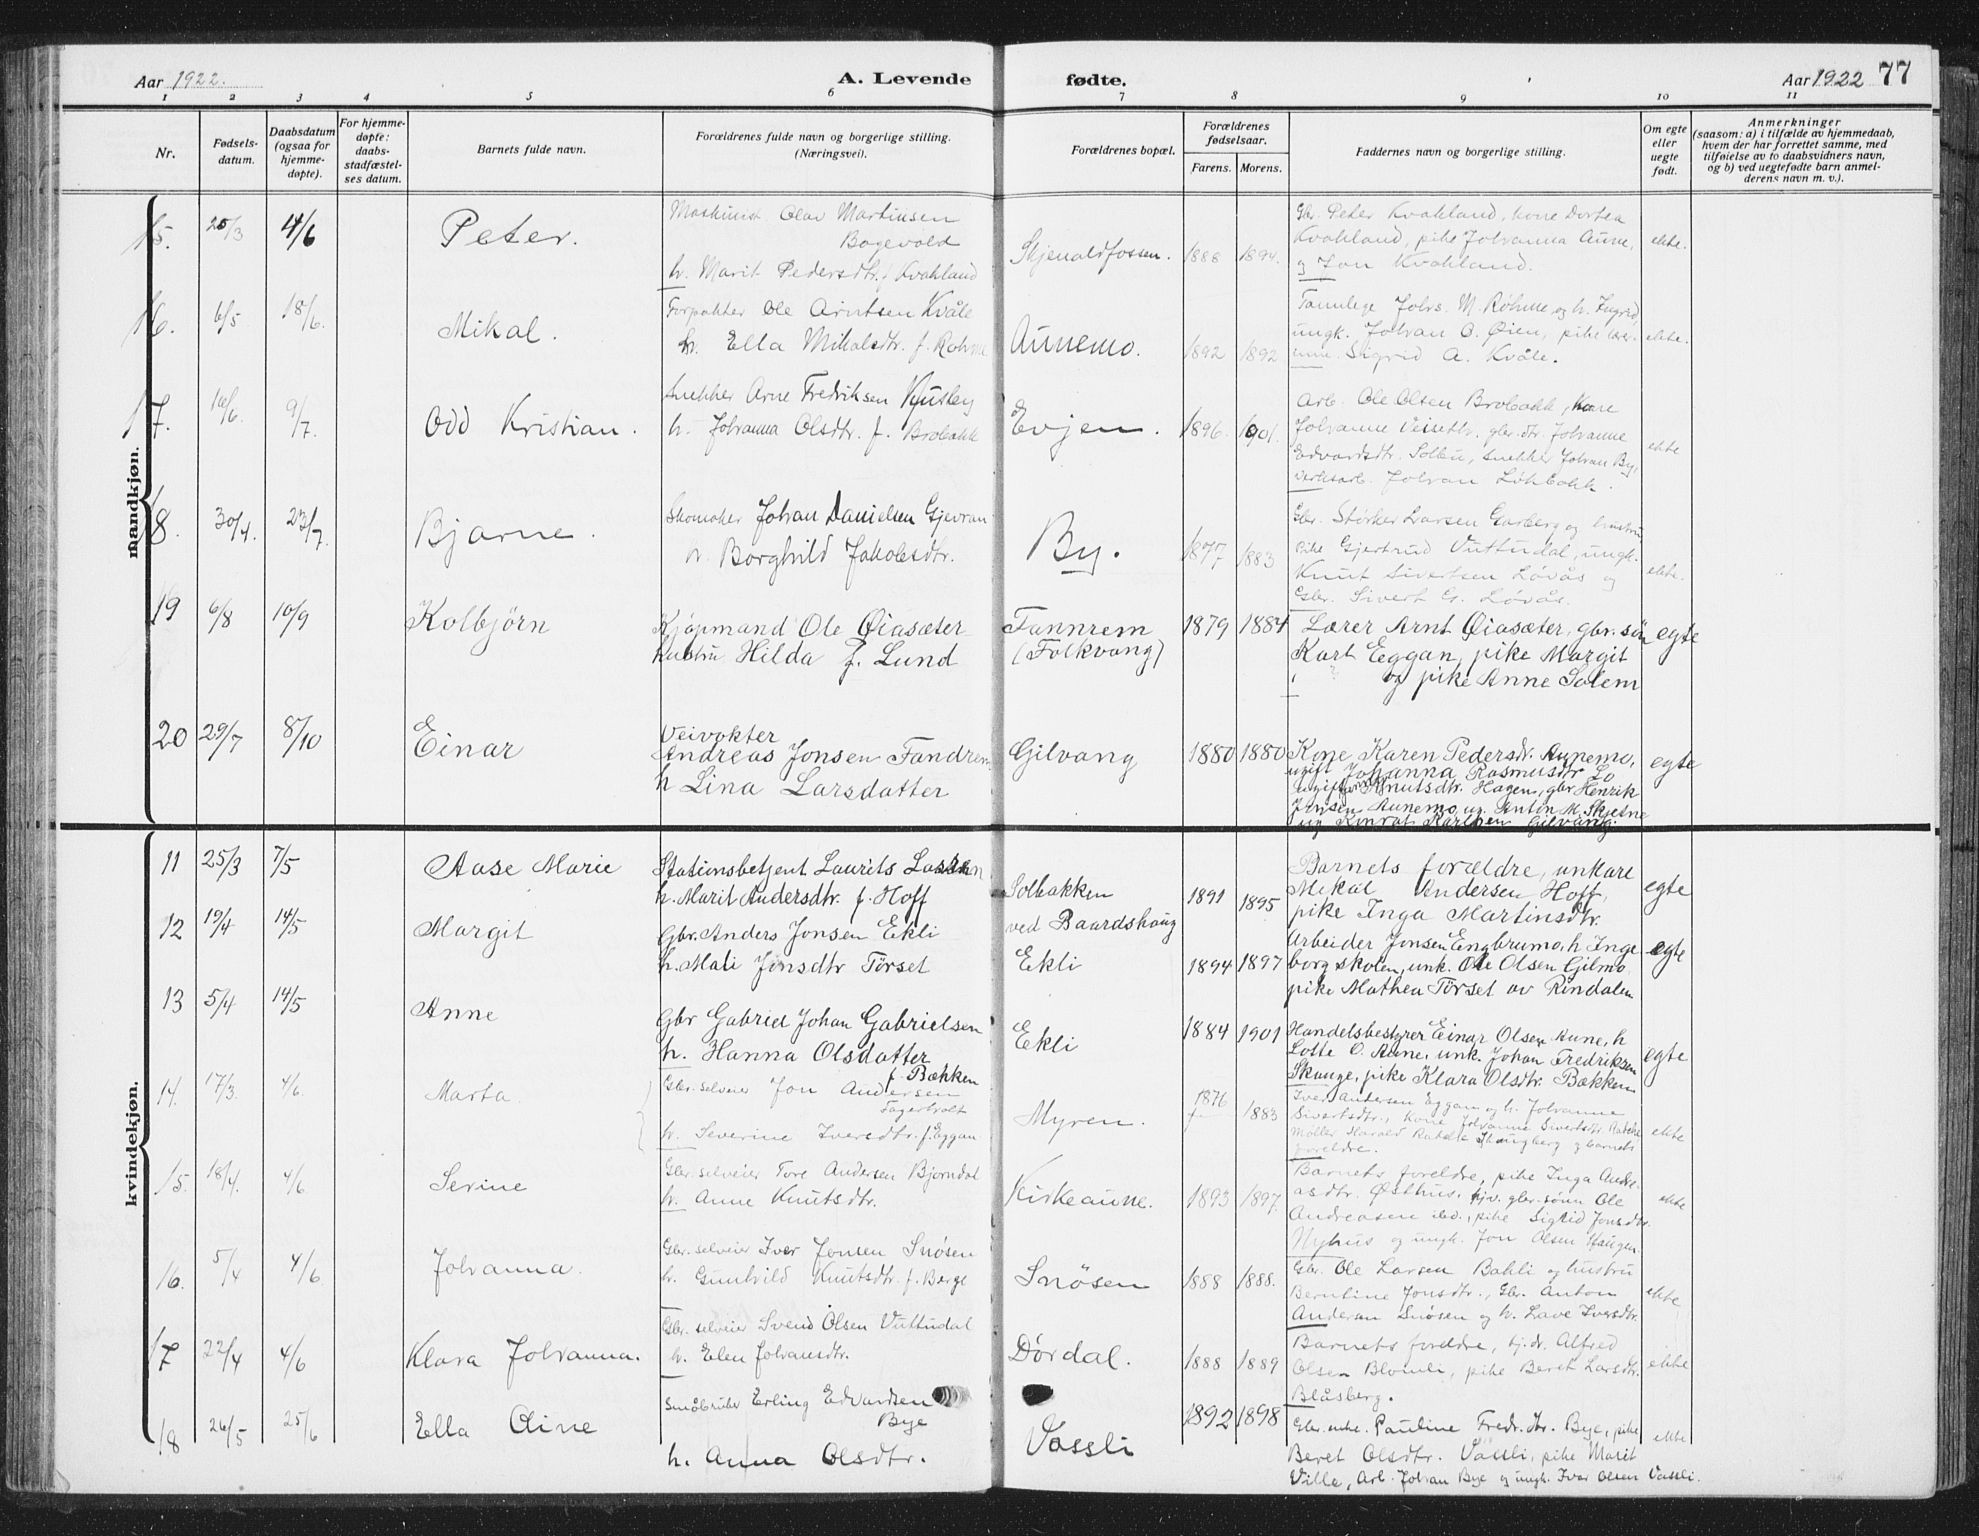 Aar 1922.
A. Levende
fødte.
Aar 1922
77
1 2 3 4 5 6 7 8 9 10 11
Nr.
Fødsels-
datum.
Daabsdatum
(ogsaa for
hjemme-
døpte).
For hjemme-
døpte:
daabs-
stadfæstel-
ses datum.
Barnets fulde navn.
Forældrenes fulde navn og borgerlige stilling.
(Næringsvei).
Forældrenes bopæl.
Forældrenes
fødselsaar.
Farens. Morens.
Faddernes navn og borgerlige stilling.
Om egte
eller
uegte
født.
Anmerkninger
(saasom: a) i tilfælde av hjemmedaab,
hvem der har forrettet samme, med
tilføielse av to daabsvidners navn,
og b) ved uegtefødte barn anmel-
derens navn m. v.).
mandkjøn.
15. 25/3 4/6 Peter.
Maskinist Olav Martinsen
Bagevold
h. Marit Pedersdtr. f. Kvakland
Skjenaldfossen. 1888 1894.
Gbr. Peter Kvakland, kone Dortea
Kvakland, pike Johanna Aune,
og Jon Kvakland.
ekte.
16. 6/5 18/6. Mikal.
Forpakter Ole Arntsen Kvåle
h. Ella Mikalsdtr. f. Rohme
Aunemo. 1892 1892
Tannlege Johs. M. Røhme og h. Ingrid,
ungk. Johan O. Øien, pike lærer-
inne. Sigrid A. Kvåle.
ekte.
17. 16/6. 9/7. Odd Kristian.
Snekker Arne Fredriksen
h. Johanna Olsdtr. f. Brobakk
Evjen. 1896. 1901.
Arb. Ole Olsen Brobakk, kone
Johanne gbr.dtr. Johanne
Edvardsdtr. Solbu, snekker Johan By,
verksarb. Johan Løkbakk.
ekte
18. 30/4. 23/7. Bjarne.
Skomaker Johan Danielsen Gjevran
h. Borghild Jakobsdtr.
By. 1877 1883
Gbr. Størker Larsen Garberg og hustru
pike Gjertrud Vuttudal, ungk.
Knut Sivertsen Løvås og
Gbr. Sivert Løvås.
ekte.
19 6/8 10/9 Kolbjörn
Kjøpmand Ole Øiasæter
hustru Hilda f. Lund
Fannrem
(Folkvang)
1879 1884
Lærer Arnt Øiasæter, gbr. søn
Karl Eggan, pike Margit
" og pike Anne Solem
egte
20 29/7 8/10 Einar
Veivokter
Andreas Jonsen Fandrem
h Lina Larsdatter
Gilvang 1880 1880
Kone Karen Pedersdr. Aunemo,
ugift Johanna Rasmusdtr Lo
ugift Knutsdtr. Hagen, gbr Henrik
Jensen Aunemo, ug. Anton M. Skjetne
ug Konrat Karlsen Gilvang.
egte
kvindekjøn.
11 25/3 7/5 Aase Marie
Stationsbetjent Laurits
h. Marit Andersdtr. f. Hoff
Solbakken
ved Baardshaug
1891 1895
Barnets forældre, unkare
Mekal Andersen Hoff,
pike Inga Martinsdtr.
egte
12 19/4 14/5 Margit
Gbr. Anders Jonsen Ekli
h. Mali Jonsdtr Tørset
Ekli 1894 1897
Arbeider Jonsen Engbrumo, h Inge
borg skolen, unk. Ole Olsen Gilmo,
pike Mathea Tørset av Rindalen
egte
13 5/4 14/5 Anne
Gbr Gabriel Johan Gabrielsen
h. Hanna Olsdatter
f. Bækken
Ekli 1884 1901
Handelsbestyrer Einar Olsen Aune, h
Lotte O. Aune, unk. Johan Fredriksen
Skauge, pike Klara Olsdtr. Bækken
egte
14. 17/3. 4/6. Marta.
Gbr. selveier Jon Andersen
Fagerholt
h. Severine Iversdtr. f. Eggan
Myren. 1876 1883
Iver Andersen Eggan og h. Johanne
Sivertsdtr., Kone Johanne Sivertsdtr.
Møller Harald og barnets
foreldre.
ekte
15. 18/4. 4/6. Serine
Gbr. selveier Tore Andersen Bjørndal
h. Anne Knutsdtr.
Kirkeaune. 1893 1897.
Barnets foreldre, pike Inga Andre-
asdtr. Østhus, hjv. gbr. sønn Ole
Andreasen ibd., pike Sigrid Jonsdtr.
Nyhus og ungk. Jon Olsen Haugen.
ekte
16. 5/4 4/6. Johanna.
Gbr. selveier Iver Jonsen Snøsen
h. Gunhild Knutsdtr. f. Berge
Snøsen 1888 1888.
Gbr. Ole Larsen Bakli og hustru
Berntine Jonsdtr., Gbr. Anton
Andersen Snøsen og h. Lave Iversdtr.
ekte
17 22/4 4/6 Klara Johanna.
Gbr. selveier Svend Olsen Vuttudal
h. Elen Johansdtr.
Dørdal. 1888 1889
Barnets foreldre, tj.dr. Alfred
Olsen Blomli, pike Beret Larsdtr.
Blåsberg.
ekte
18 26/5 25/6 Ella Oline
Småbruker Erling Edvardsen
Bye
h. Anna Olsdtr.
Vassli 1892 1898
Gbr. enke. Pauline Fredr.dtr. Bye, pike
Beret Olsdtr. Vassli, pike Marit
Ville, Arb. Johan Bye og ungk. Ivar Olsen Vassli.
ekte